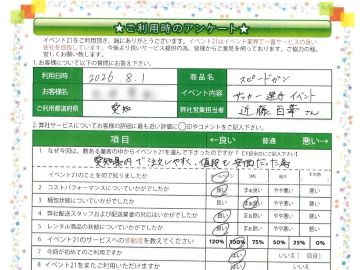 ★ご利用時のアンケート★
イベント21をご利用頂き、誠にありがとうございます。イベント21はイベント業界で一番サービスの良い
会社を目指しています。今後より良いサービス提供の為、皆様からご意見を伺っております。ご協力の程、
宜しくお願い致します。
1. お客様について以下の質問にお答え下さい。
利用日時 2026.8.1 商品名 スピードガン
お客様名 イベント内容 サッカー選手イベント
ご利用都道府県 愛知 弊社営業担当者 近藤百華さん
2. 弊社サービスについてお客様の評価に最も近い評価に○印やコメントをご記入下さい。
項目 ←良い 普通 悪い→
1 なぜ今回は、数ある業者の中からイベント21を選んで下さったのですか?
愛知県内で注文しやすく、値段も安価だった為
イベント21のことを何で知りましたか
2 コストパフォーマンスについていかがでしたか 良い まぁ良い やや悪い 悪い
3 梱包状態についていかがでしたか 良い まぁ良い やや悪い 悪い
4 弊社配送スタッフおよび配送業者の対応はいかがでしたか 良い まぁ良い やや悪い 悪い
5 レンタル商品の状態についていかがでしたか 良い まぁ良い やや悪い 悪い
6 イベント21のサービスへの感動度を教えてください 120% 100% 75% 50% 25% 0%
7 今回が初めてのご利用ですか はい いいえ
イベント21をまたご利用いただけますか はい いいえ